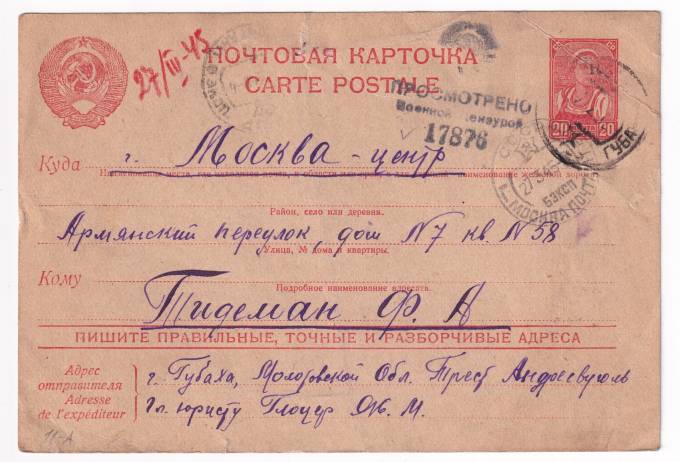 27/III-45
ПОЧТОВАЯ КАРТОЧКА
CARTE POSTALE
ПРОСМОТРЕНО
Военной Цензурой
17876
20 20
ГУБАХА
27 3 45
БЗКСП
МОСКВА ПОЧТ
Куда г. Москва - центр
наименование железной дороги
Район, село или деревня.
Армянский переулок, дом N7 кв. N 58
Улица, № дома и квартиры.
Кому
Подробное наименование адресата.
Тидеман Ф. А
ПИШИТЕ ПРАВИЛЬНЫЕ, ТОЧНЫЕ И РАЗБОРЧИВЫЕ АДРЕСА
Адрес отправителя
Adresse de l'expéditeur
г. Губаха, Молотовской Обл. Трест Андреевуголь
Гл. юристу Глоцер Ю. М.
11-А